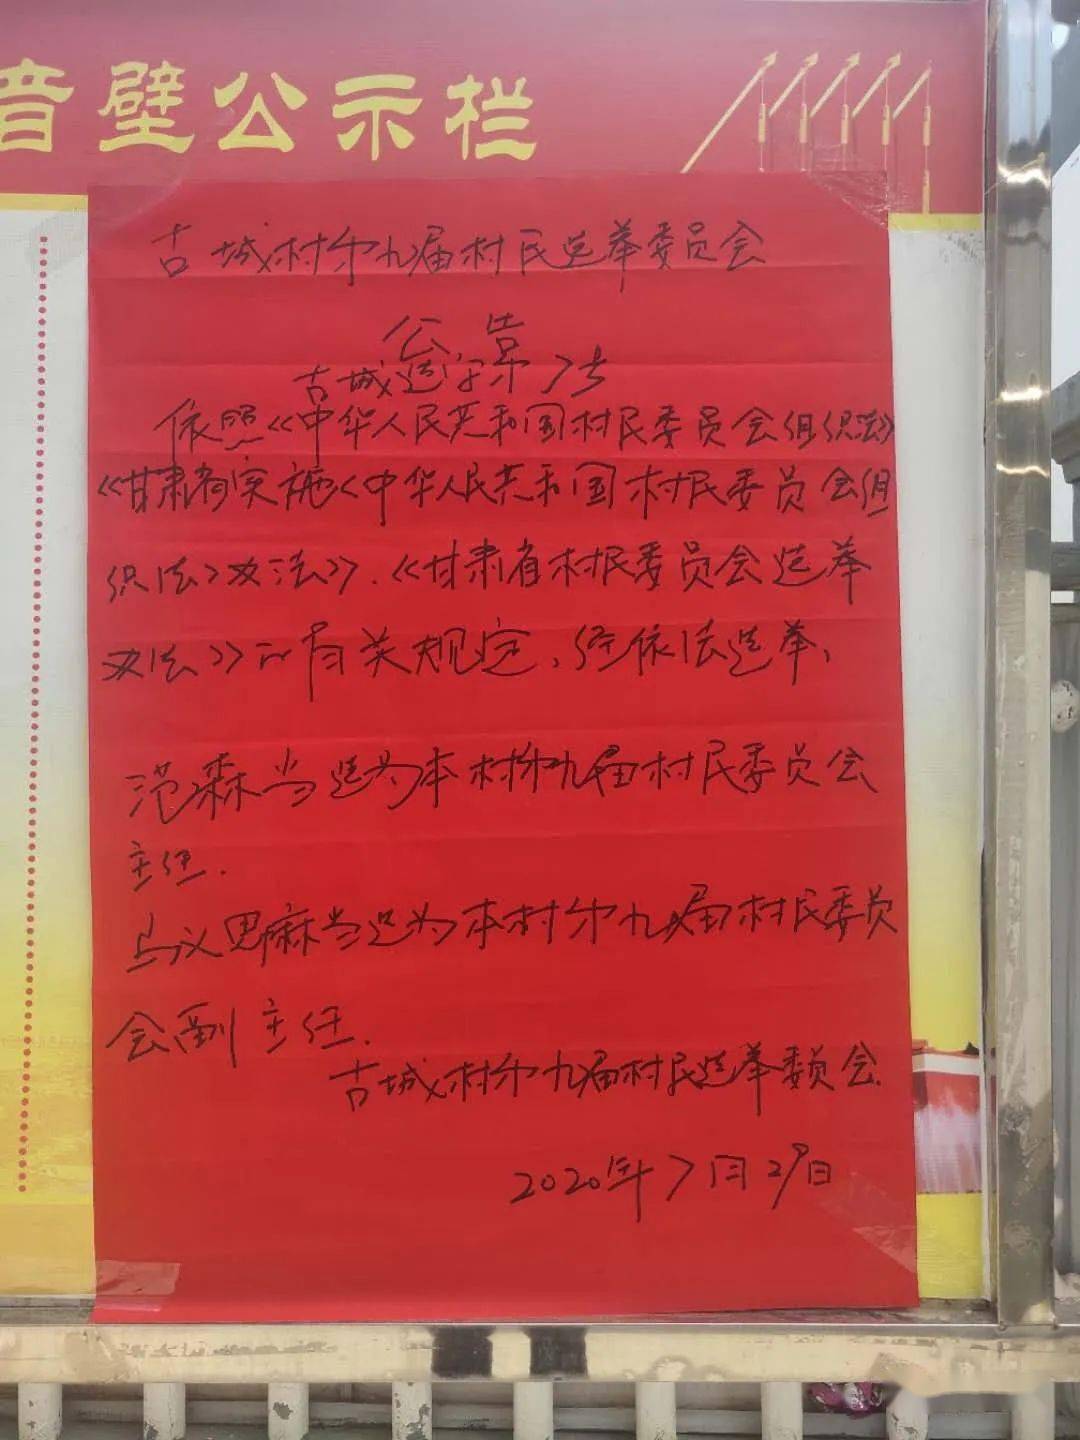 音壁公示栏
古城村第九届村民选举委员会
公告
古城选字第7号
依照《中华人民共和国村民委员会组织法》
《甘肃省实施〈中华人民共和国村民委员会组
织法〉办法》、《甘肃省村民委员会选举
办法》的有关规定，经依法选举，
范森当选为本村第九届村民委员会
主任.
马义思麻当选为本村第九届村民委员
会副主任.
古城村第九届村民选举委员会
2020年7月29日